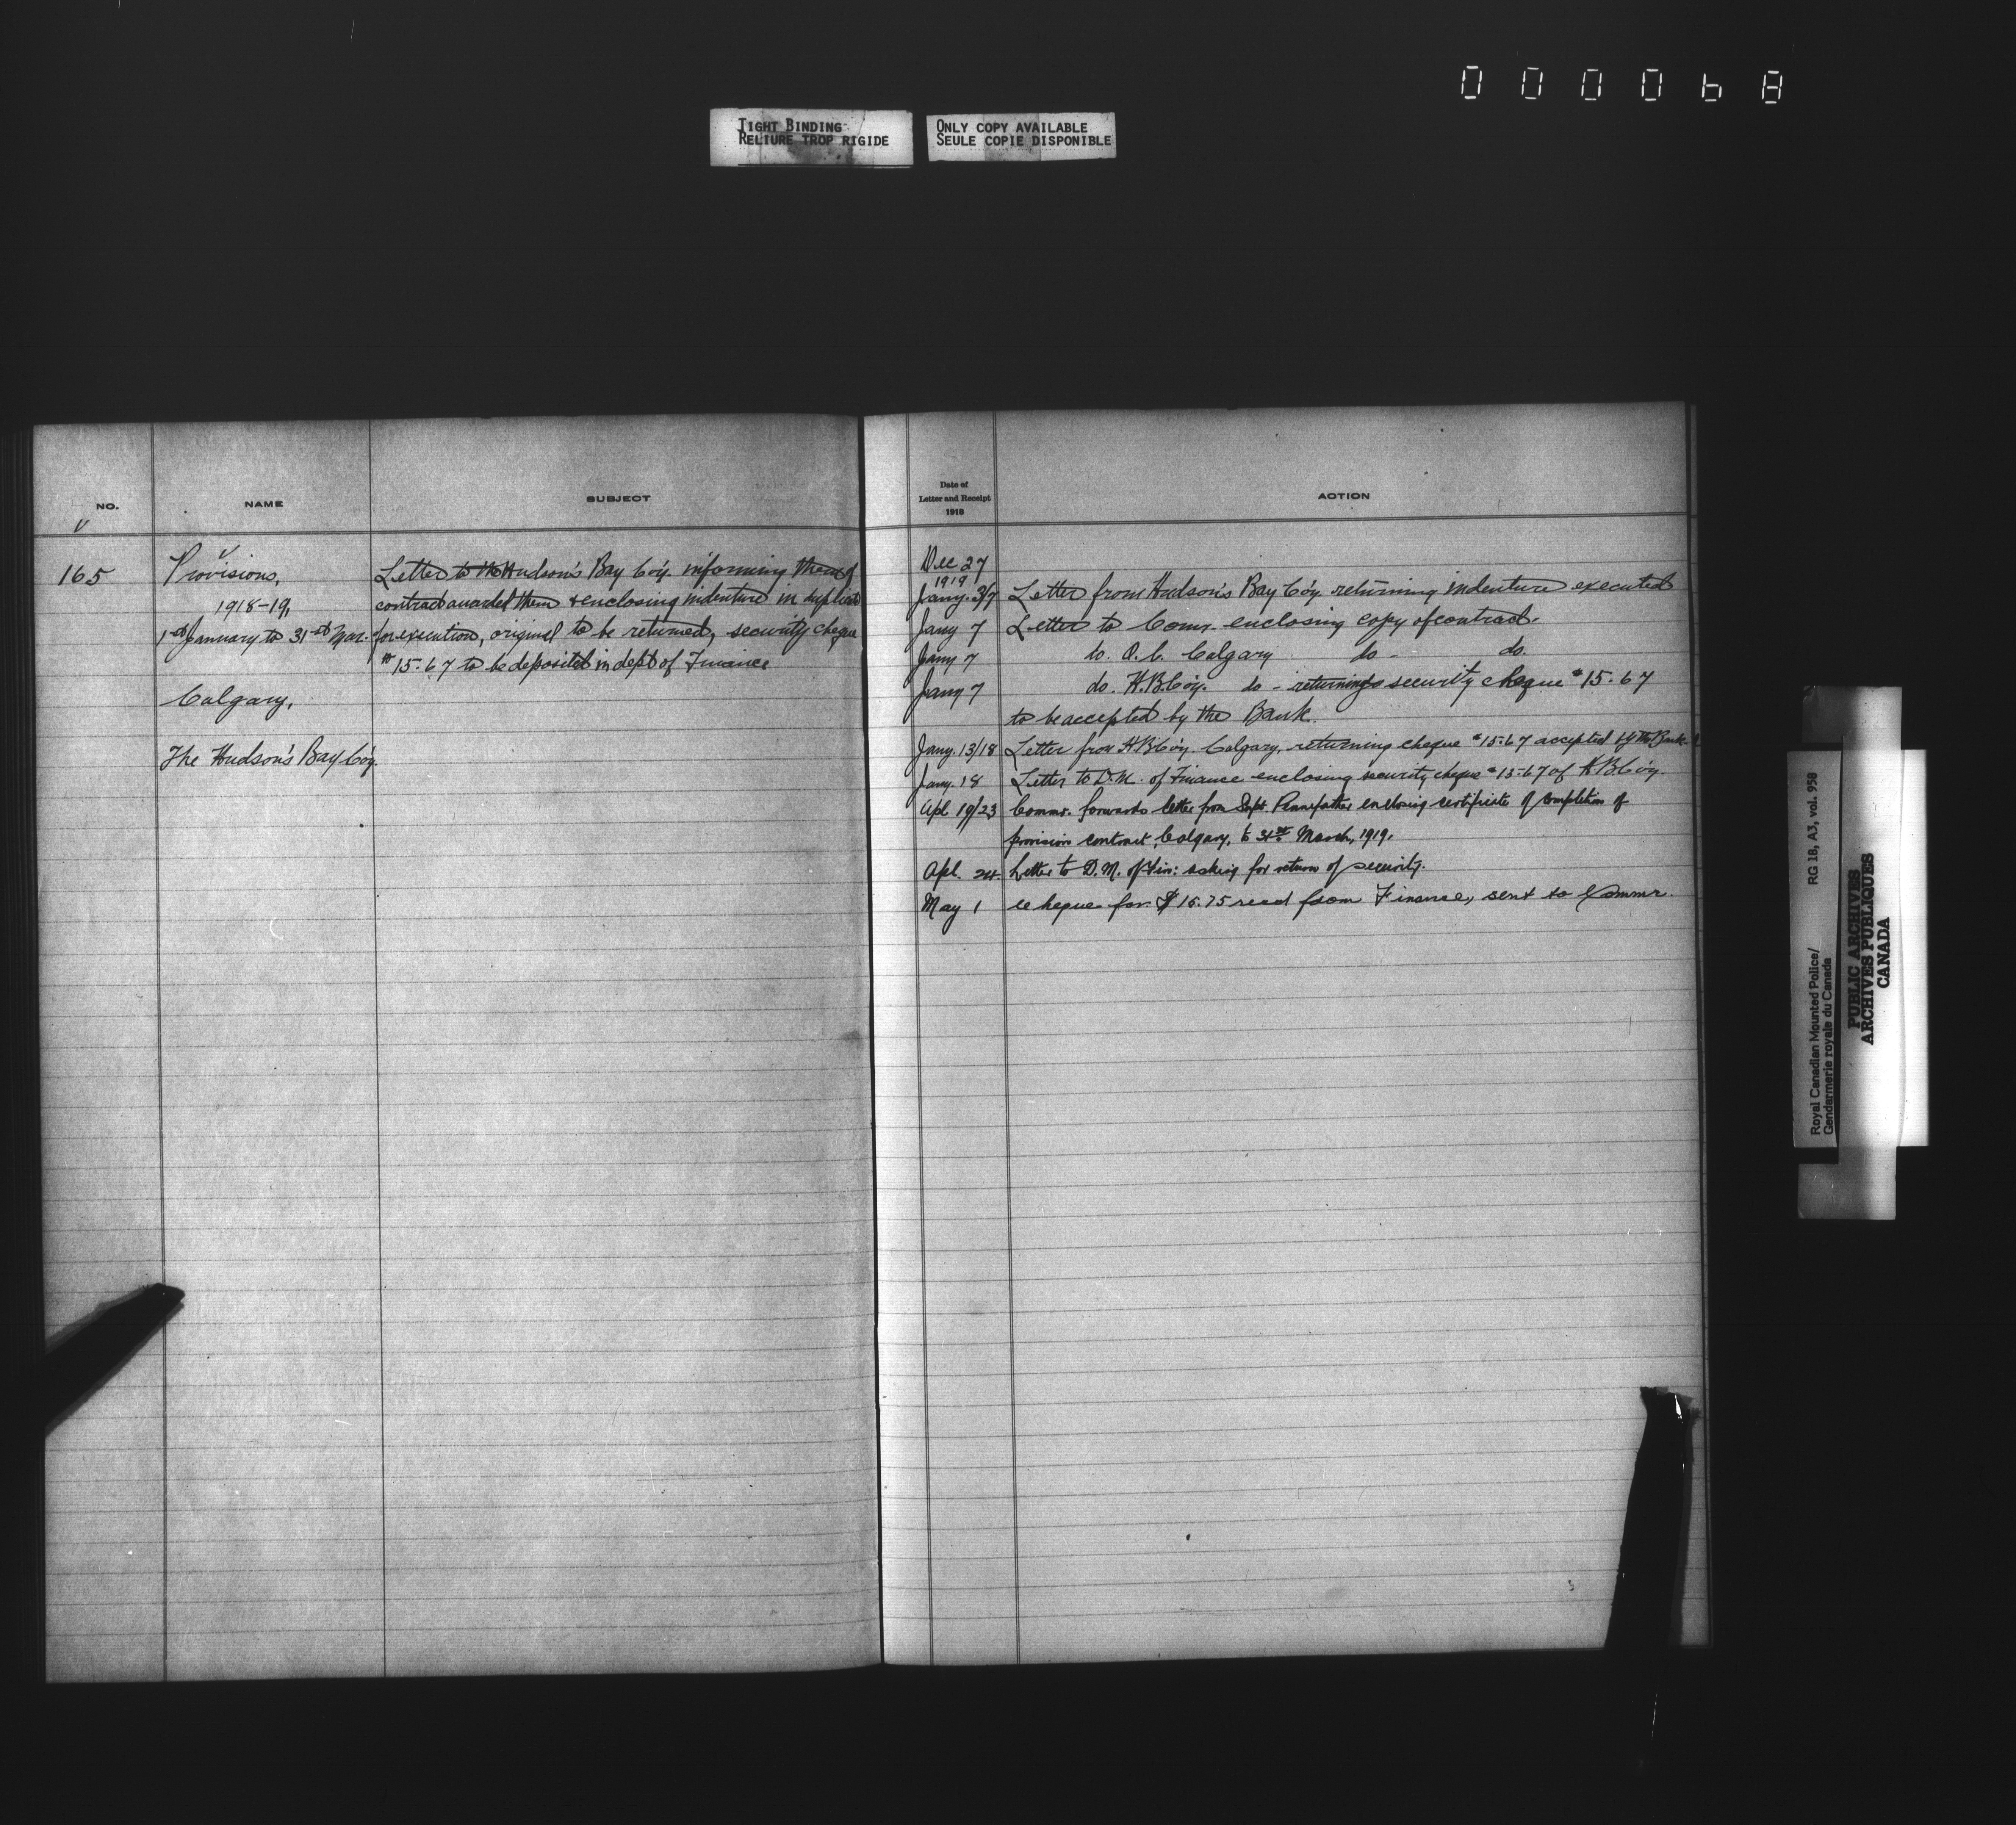 000068
TIGHT BINDING
RELIURE TROP RIGIDE
ONLY COPY AVAILABLE
SEULE COPIE DISPONIBLE
NO.
NAME
SUBJECT
165
Provisions,
1918-19,
1st January to 31st Mar.
Calgary,
The Hudson's Bay Co'y.
Letter to the Hudson's Bay Co'y. informing them of
contract awarded them & enclosing indenture in duplicate
for execution, original to be returned, security cheque
15.67 to be deposited in dept of Finance
Date of
Letter and Receipt
1918
ACTION
Dec 27
1919
Jany. 3/7 Letter from Hudson's Bay Co'y. returning indenture executed
Jany 7 Letter to Comr. enclosing copy of contract.
Jany 7 do. O.C. Calgary do - do.
Jany 7 do. H.B.Co'y. do - returning security cheque 15.67
to be accepted by the Bank.
Jany. 13/18 Letter from H.B.Co'y. Calgary, returning cheque 15.67 accepted by the Bank.
Jany. 18 Letter to D.M. of Finance enclosing security cheque 15.67 of H.B.Co'y.
Apl 19/23 Commr. forwards letter from Supt. Pennefather enclosing certificate of completion of
provision contract, Calgary, to 31st March, 1919.
Apl. 24. Letter to D.M. of Fin: asking for return of security.
May 1 Cheque for $15.75 recd from Finance, sent to Commr.
Royal Canadian Mounted Police/
Gendarmerie royale du Canada
RG 18, A3, vol. 958
PUBLIC ARCHIVES
ARCHIVES PUBLIQUES
CANADA